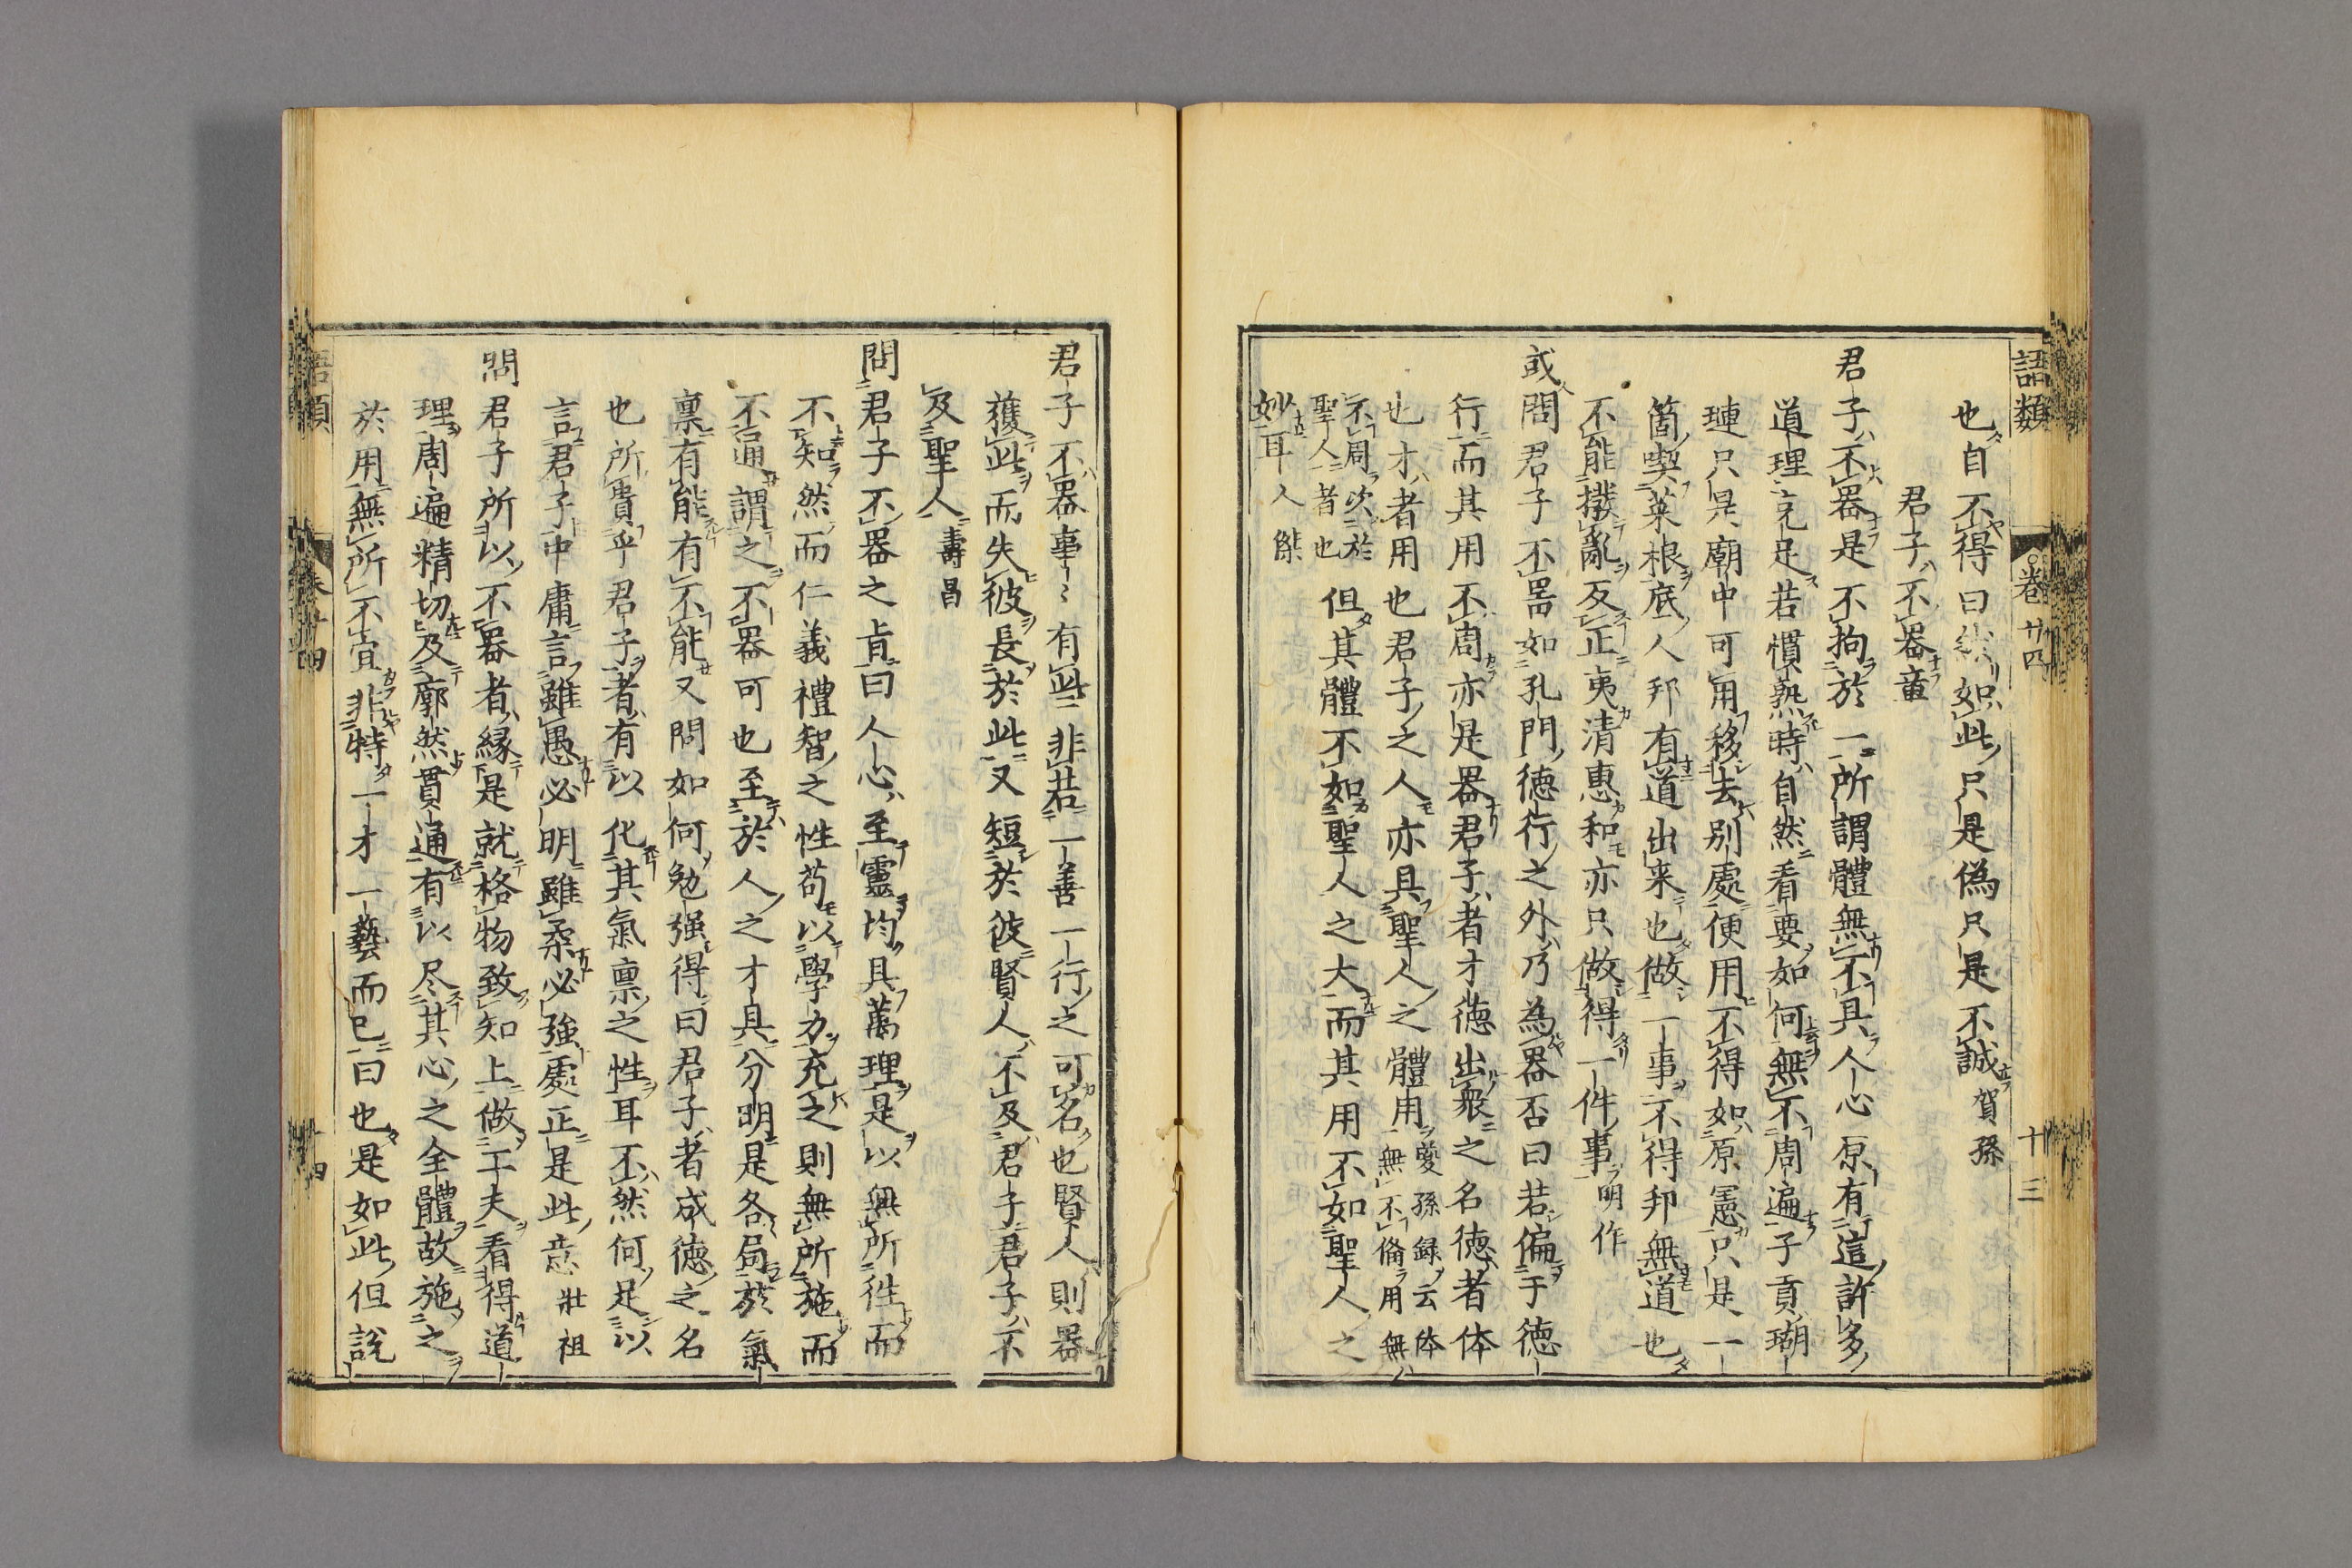 語類 卷廿四 十三
也自不得曰然如此只是偽只是不誠賀孫
君子不器章
君子不器是不拘於一所謂體無不具人心原有這許多
道理充足若慣熟時自然看要如何無不周遍子貢瑚
璉只是廟中可用移去別處便用不得如原憲只是一
箇喫菜根底人邦有道出来也做一事不得邦無道也
不能撥亂反正夷清惠和亦只做得一件事明作
或問君子不器如孔門德行之外乃為器否曰若偏于德
行而其用不周亦是器君子者才德出衆之名德者体
也才者用也君子之人亦具聖人之體用夔孫録云体無不備用無
不周次於聖人者也但其體不如聖人之大而其用不如聖人之
妙耳人傑
君子不器事事有此非若一善一行之可名也賢人則器
獲此而失彼長於此又短於彼賢人不及君子君子不
及聖人壽昌
問君子不器之㫖曰人心至靈均具萬理是以無所徃而
不知然而仁義禮智之性苟以學力充之則無所施而
不通謂之不器可也至於人之才具分明是各局於氣
禀有能有不能又問如何勉强得曰君子者成德之名
也所貴乎君子者有以化其氣禀之性耳不然何足以
言君子中庸言雖愚必明雖柔必強處正是此意壯祖
問君子所以不器者緣是就格物致知上做工夫看得道
理周遍精切及廓然貫通有以尽其心之全體故施之
於用無所不宜非特一才一藝而已曰也是如此但說
語類 卷廿四 十四